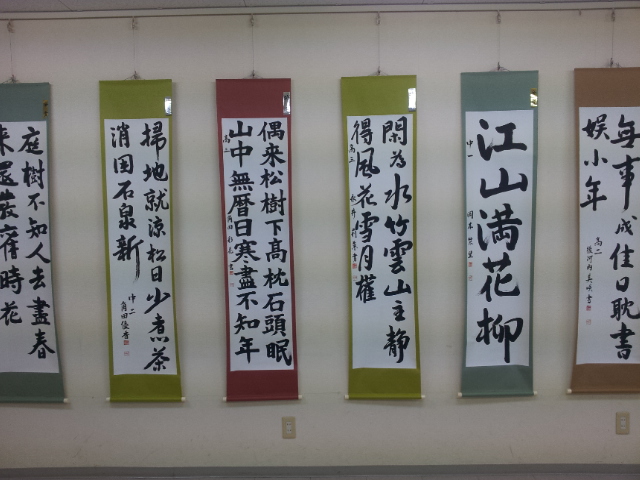 無事成佳日耽書
娯小年
高二
江山満花柳
中一
閑為水竹雲山主静
得風花雪月権
高三
偶来松樹下高枕石頭眠
山中無暦日寒盡不知年
高二
掃地就涼松日少煮茶
消困石泉新
中二
角田優香
庭樹不知人去盡春
来還發舊時花